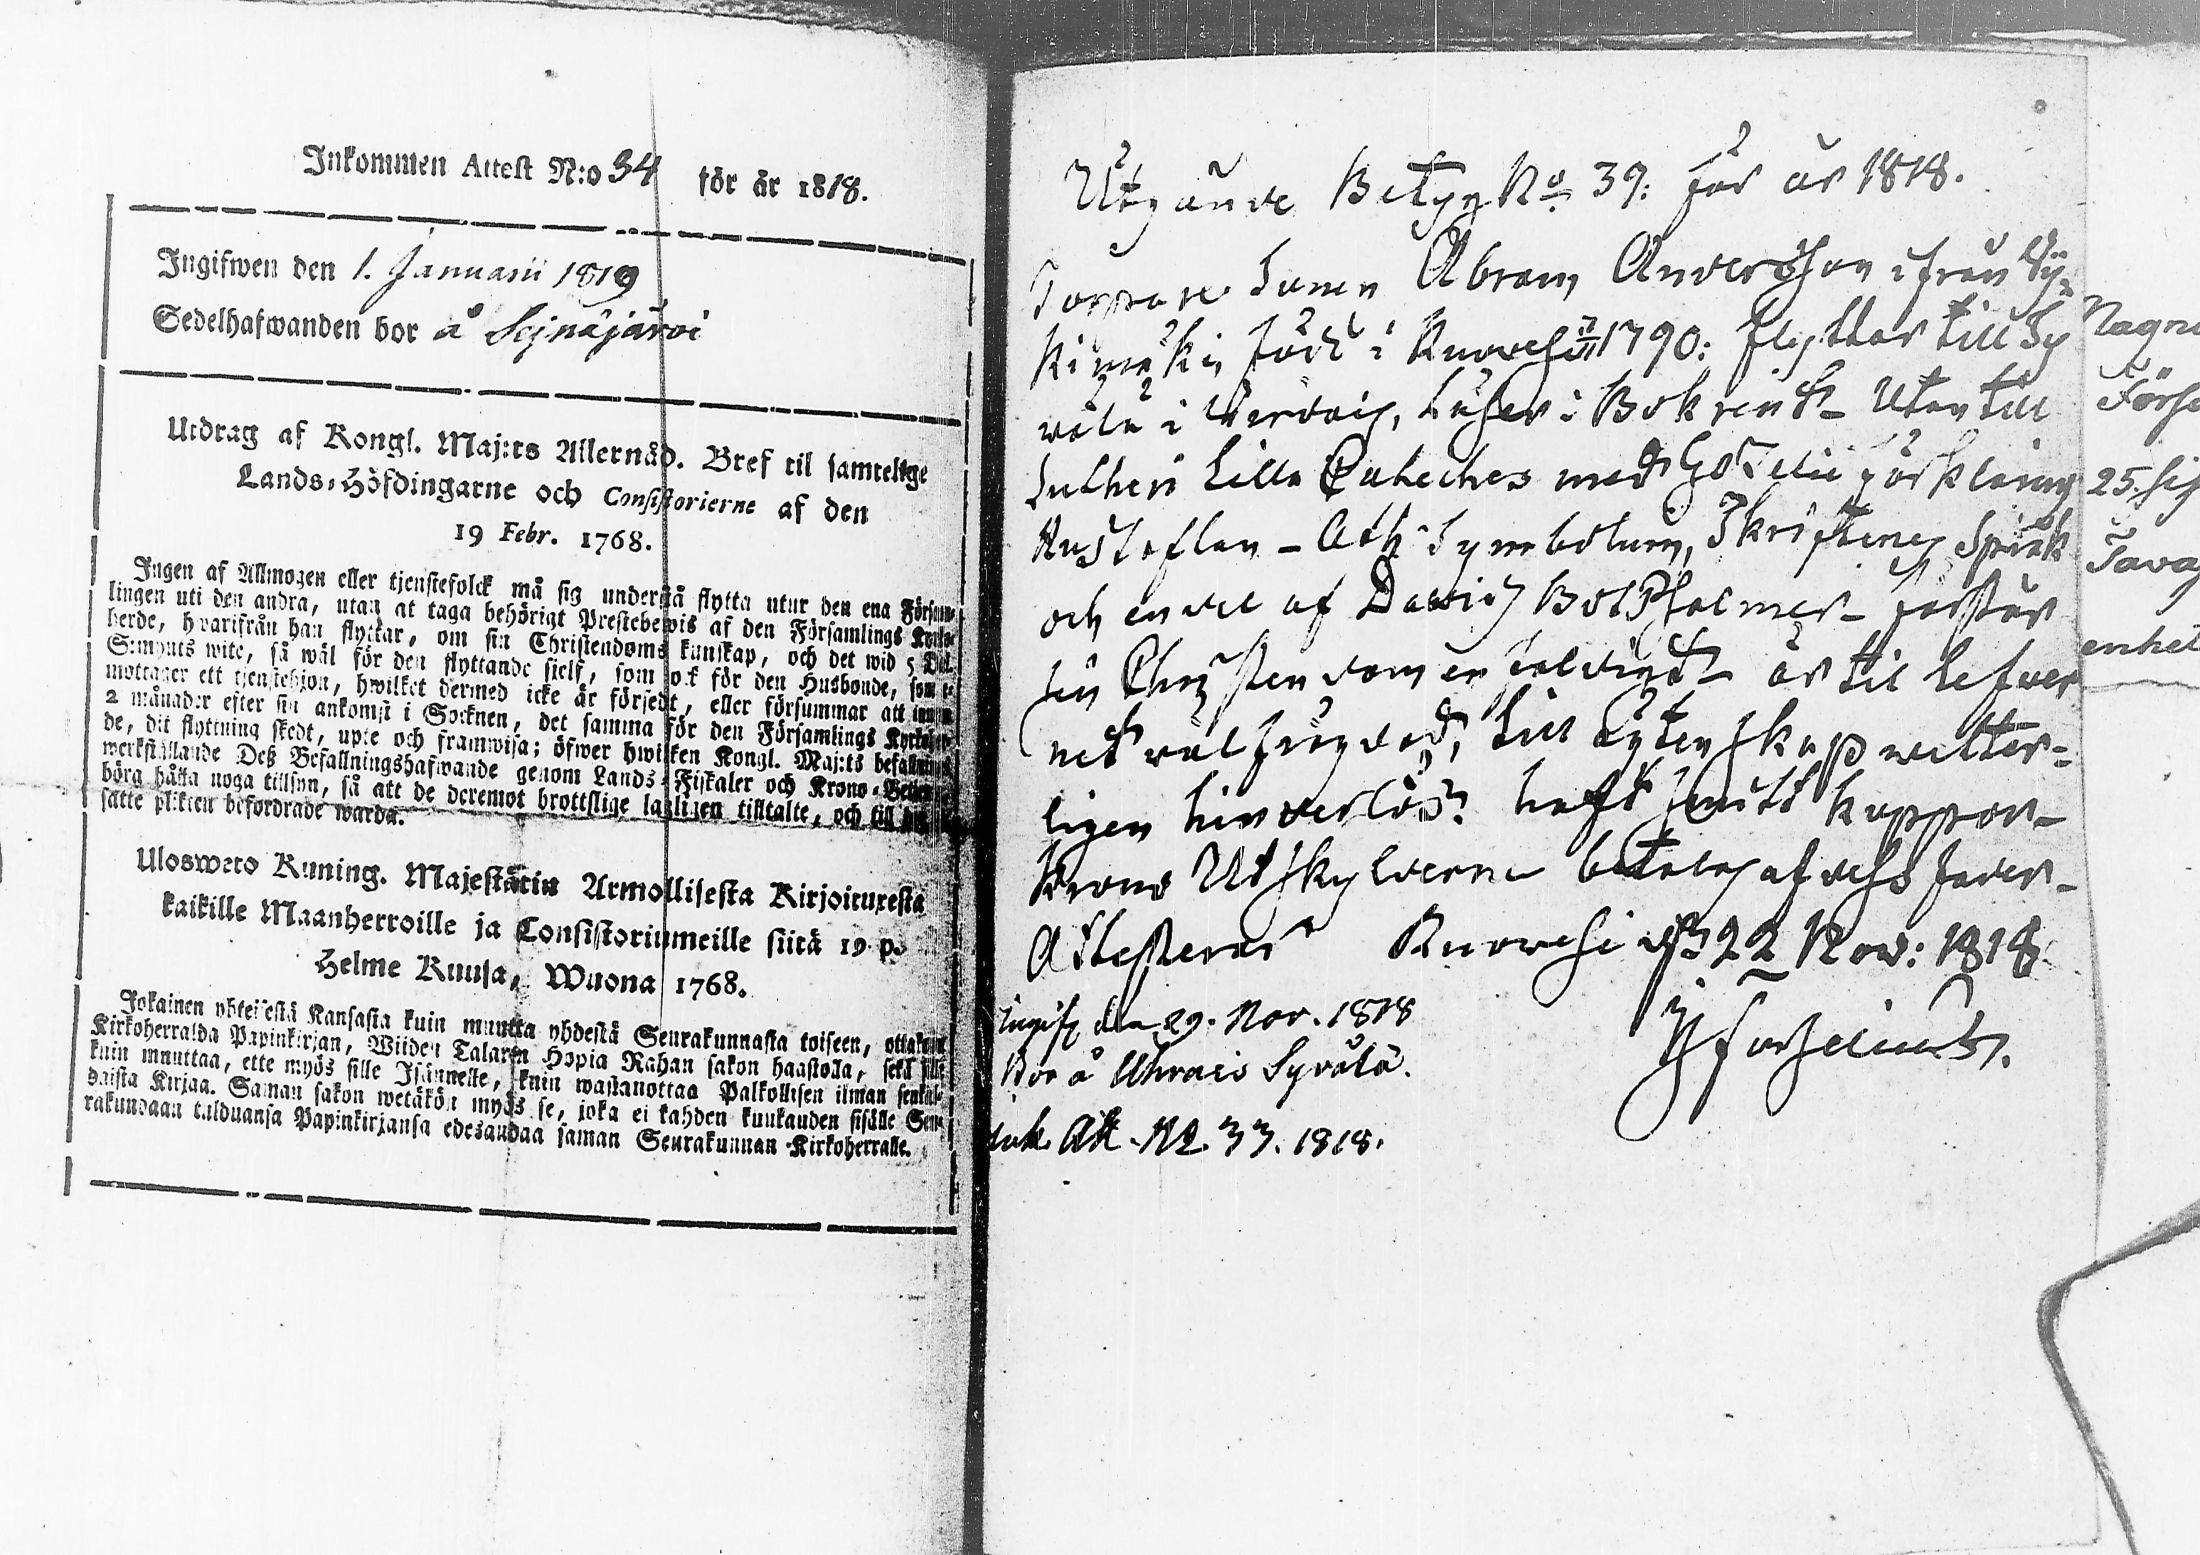 Inkommen Attest N:o 34 för år 1818.
Ingifwen den 1. Januarii 1819
Sedelhafwanden bor å Sejnäjärvi
Utdrag af Kongl. Maj:ts Allernåd. Bref til samtelige
Lands-Höfdingarne och Consistorierne af den
19 Febr. 1768.
Ingen af Allmogen eller tjenstefolck må sig understå flytta utur den ena Försam-
lingen uti den andra, utan at taga behörigt Prestebewis af den Församlings Kyrko-
herde, hvarifrån han flyttar, om sin Christendoms kunskap, och det wid 5 Dal.
S:mynts wite, så wäl för den flyttande sjelf, som ock för den Husbonde, som
mottager ett tjenstehjon, hwilket dermed icke är försedt, eller försummar att
2 månader efter sin ankomst i Socknen, det samma för den Församlings
de, dit flyttning skedt, upte och framwisa; öfwer hwilken Kongl. Maj:ts
werkställande Deß Befallningshafwande genom Lands-Fiskaler och Krono-
böra hålla noga tillsyn, så att de deremot brottslige lagligen tilltalte, och till
satte plikten befordrade warda.
Ulosweto Kuning. Majestätin Armollisesta Kirjoituxesta
kaikille Maanherroille ja Consistoriumeille siitä 19 p.
Helme Kuusa, Wuona 1768.
Jokainen yhteisestä Kansasta kuin muutta yhdestä Seurakunnasta toiseen, ottakaan
Kirkoherralda Papinkirjan, Wiiden Talarin Hopia Rahan sakon haastolla, sekä sille
kuin muuttaa, ette myös sille Isännelle, kuin wastanottaa Palkollisen ilman
daista Kirjaa. Saman sakon wetäkön myös se, joka ei kahden kuukauden sisälle Seu-
rakundaan tulduansa Papinkirjansa edesandaa saman Seurakunnan Kirkoherralle.
Utgående Betyg No 39: för år 1818.
Torpare Sonen Abram Andersson ifrån Sy-
kimäki, född i Kuorvesi 1790: flyttar till Sy
välä i Verdois, Läser i Bok rent Utan till
Lutheri Lilla Cateches med förklaring
Hustaflan - Ath: Symbolum, Skriftenes Språk
och en del af Davids Bot Psalmer - förstår
sin Christendom enfaldigt - är til lefver
net väl frägdad, till Ägtenskap vetter-
ligen hinderlös: haft skyddskoppor -
Krono Utskylderne betalas af dess fader -
Attesterar Kuorvesi d: 22 Nov: 1818
Ingif. den 29. Nov. 1818
Bor å Uhrais Syvälä.
Ink. Att. No. 33. 1818.
Förs
25.
enhet